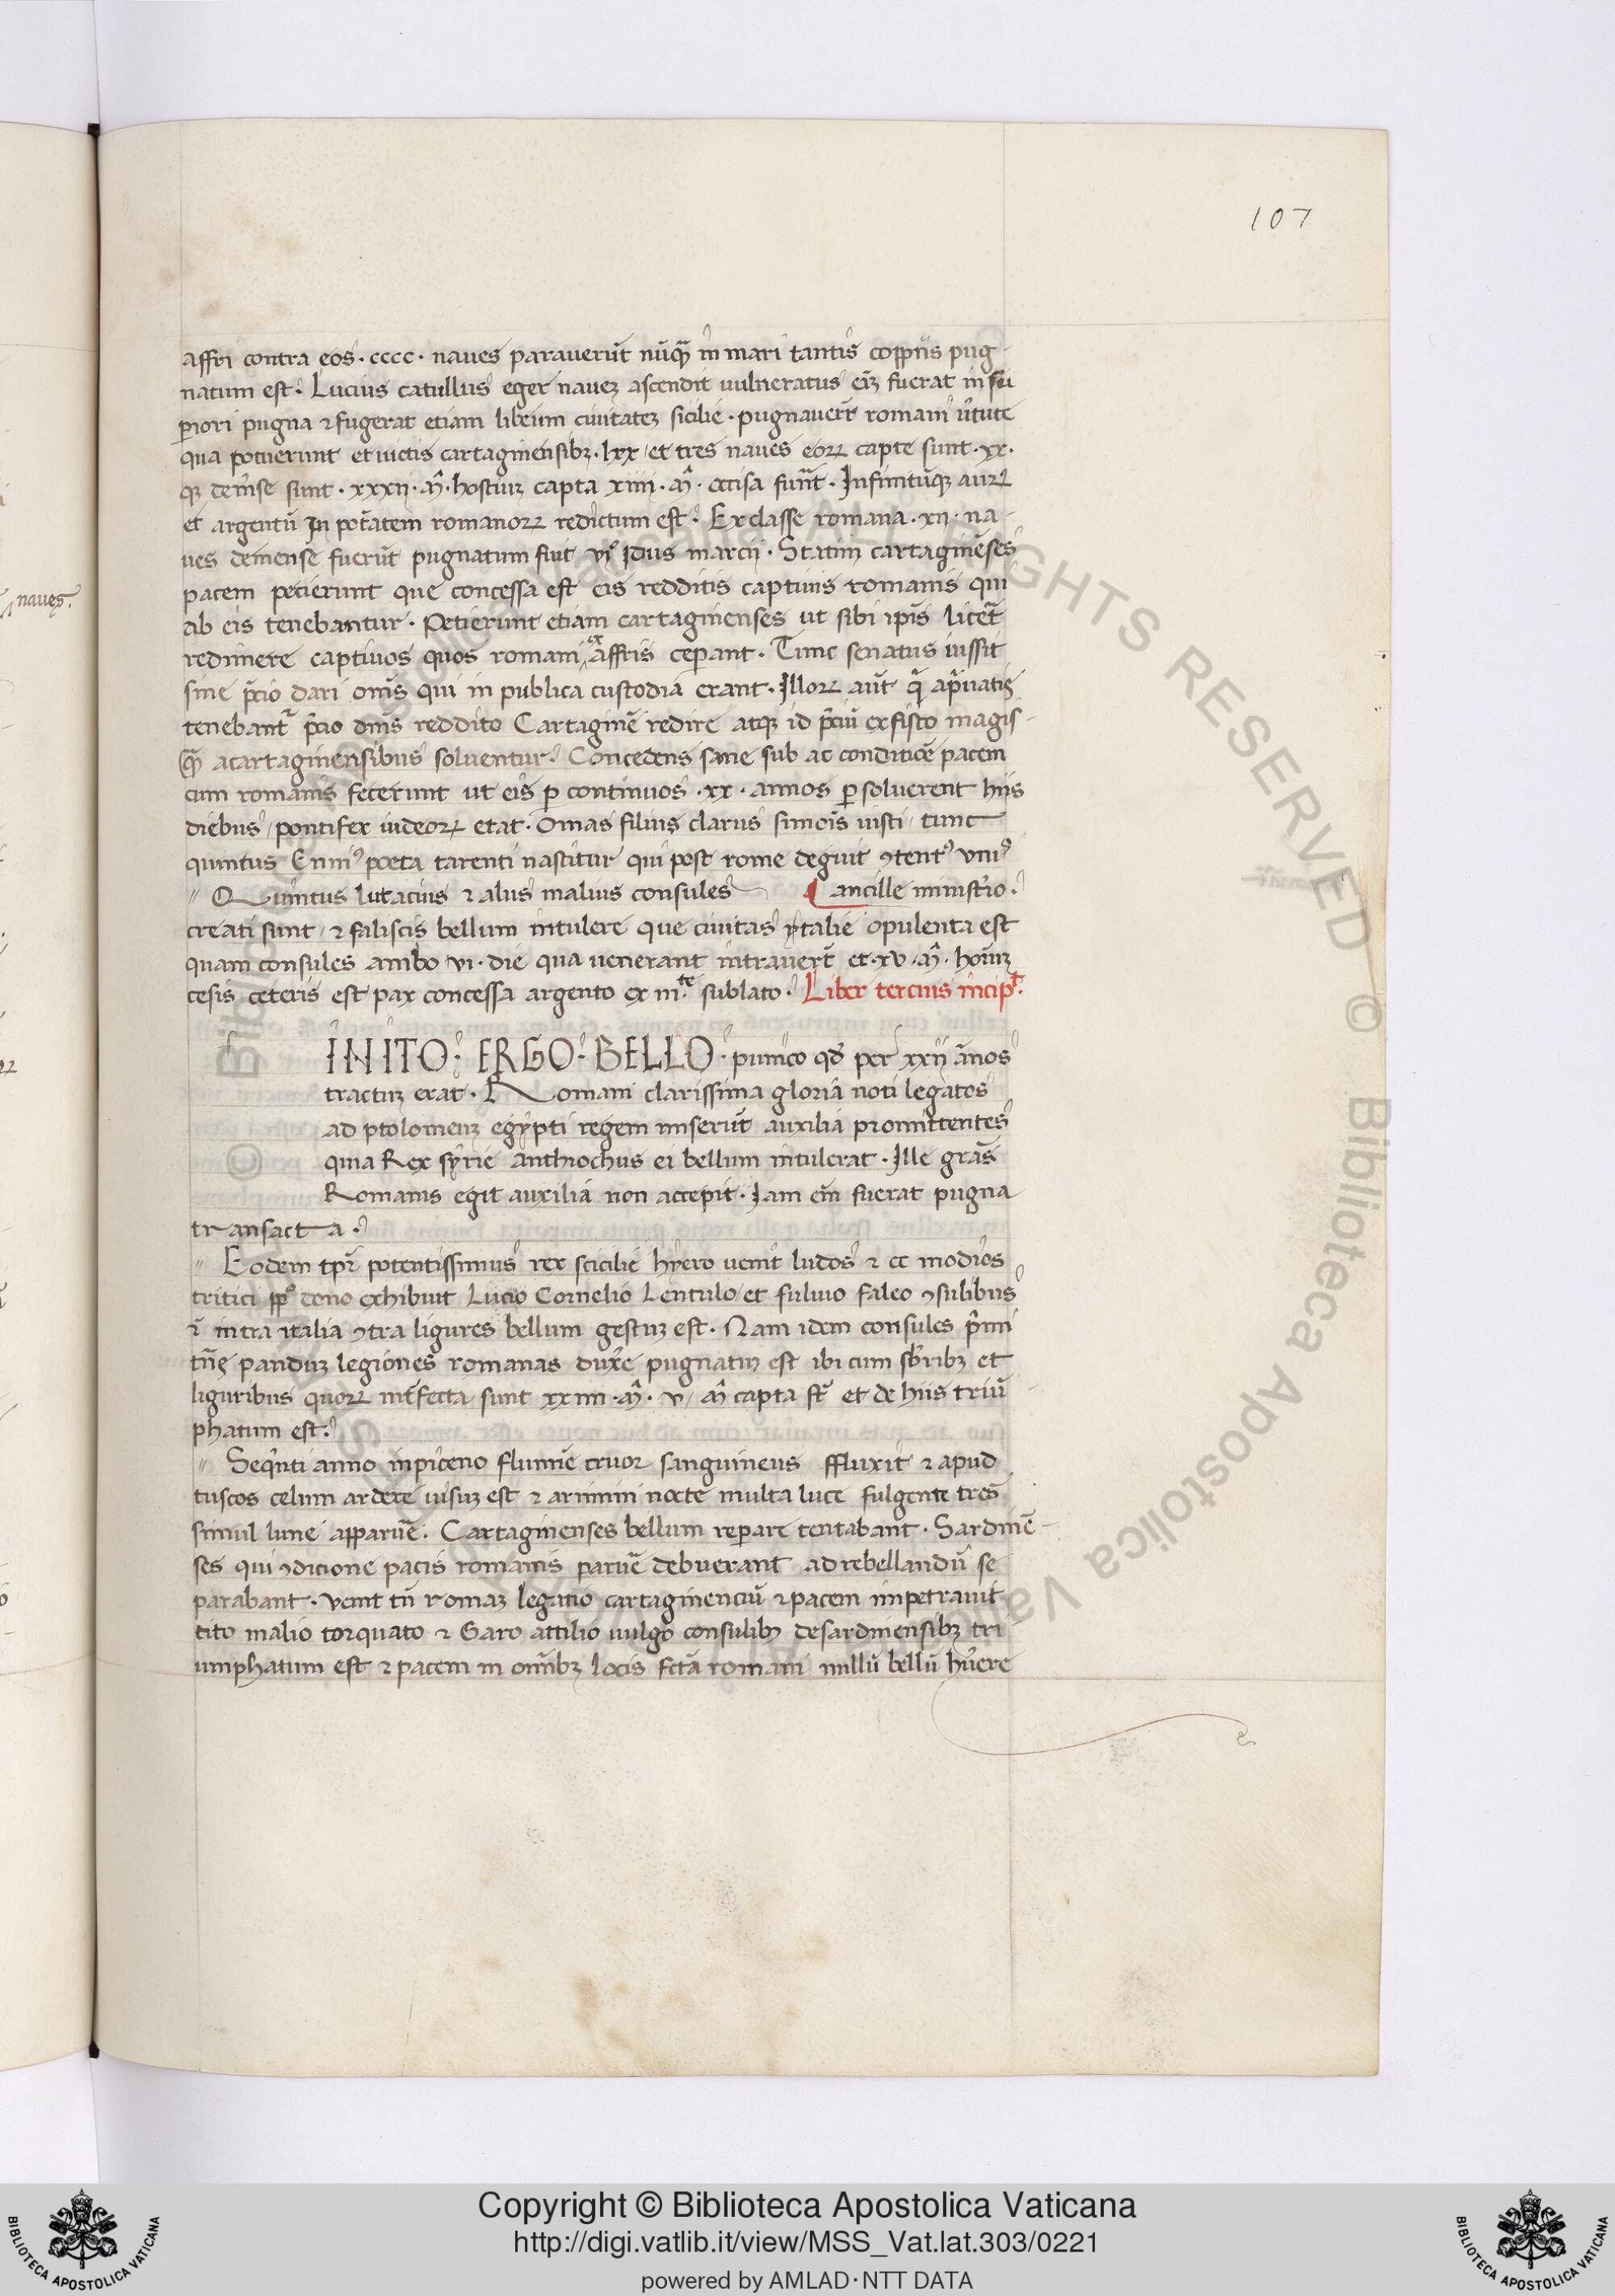 107
affri contra eos · cccc · naues parauerūt nūq̄ in mari tantis copp̄ijs pug-
natum est · Lucius catullus eger nauez ascendit uulneratus eīz fuerat in su
p̱iori pugna ⁊ fugerat etiam libeum ciuitatez sicilie · pugnauerūt romani u̓tute
qua potuerunt et uictis cartaginensibꝫ · lxx / et tres naues eorꝝ capte sunt · xx ·
qꝫ dem̓se sunt · xxxij · m̄ · hostiuꝫ capta xiiij · m̄ · occisa fuūt · Infinitūqꝫ aurꝝ
et argentū In pot̄atem romanorꝝ redictum est · Ex classe romana · xij · na-
ues demense fuerūt pugnatum fuit vj° idus marcij · Statim cartaginēses
pacem petierunt que concessa est eis redditis captiuis romanis qui
ab eis tenebantur · Petierunt etiam cartaginenses ut sibi ip̄is licer̄t
redimere captiuos quos romani ax affris ceperant · Tunc senatus iussit
sine p̄cio dari om̄s qui in publica custodia erant · Illorꝝ aūt q̄ ap̓uatis
tenebant᷑ p̄cio dn̄is reddito Cartaginē redire atqꝫ id p̄ciū ex fisco magis-
q̄ acartaginensibus soluentur · Concedens sane sub ac conditiōe pacem
cum romanis fecerunt ut eis ꝑ continuos · xx · annos ꝑsoluerent hijs
diebus / pontifex iudeorꝝ etat · Omas filius clarus simois iusti / tunc
quintus Enniꝰ poeta tarenti nascitur qui post rome deguit ꝯtentꝰ vniꝰ
" Quintus lutacius ⁊ alus malius consules ¶ ancille minist̓io ·
creati sunt / ⁊ faliscis bellum intulere que ciuitas ytalie opulenta est
quam consules ambo vi · die qua uenerant intrauer̄t et · xv · m̄ · hoīuꝫ
cesis ceteris est pax concessa argento ex m.te sublato · Liber tercius incipt̄ ·
f INITO · ERGO · BELLO · punico qd̄ per xxij ānos
tractuꝫ erat · Romani clarissima gloria noti legatos
ad ptolomeuꝫ egypti regem miserūt auxilia promittentes
quia Rex syrie anthiochus ei bellum intulerat · Ille grās
Romanis egit auxilia non accepit · Iam em̄ fuerat pugna
transacta ·
" Eodem tp̄r potentissimus rex scicilie hyero uenit ludos ⁊ cc modios
tritici pp̄° dono exhibuit Lucio Cornelio Lentulo / et fuluio faleo ꝯsulibus
⁊ intra italia ꝯtra ligures bellum gestuꝫ est · Nam idem consules p̓mi
tn̄s panduꝫ legiones romanas duxe pugnatuꝫ est ibi cum sb̓ribꝫ et
liguribus quorꝝ int̄fecta sunt xxiiij · m̄ · v / m̄ capta st̄ et de hiis triū-
phatum est ·
" Seq̓nti anno in piceno flumiē cruor sanguineus ffluxit ⁊ apud
tuscos celum ardere uisuꝫ est ⁊ arimini nocte multa luce fulgente tres
simul lune apparuē · Cartaginenses bellum reparare tentabant · Sardinē-
ses qui ꝯdicione pacis romanis paruē debuerant ad rebellandū se
parabant · Venit tn̄ romaꝫ legatio cartaginenciū ⁊ pacem impetrauit
tito malio torquato ⁊ Garo attilio uulgo consulibꝫ de sardinensibꝫ tri
umphatum est ⁊ pacem in om̄ibꝫ locis fctā romani nullū bellū hūere
naues.
Copyright © Biblioteca Apostolica Vaticana
http://digi.vatlib.it/view/MSS_Vat.lat.303/0221
powered by AMLAD·NTT DATA
BIBLIOTECA APOSTOLICA VATICANA
BIBLIOTECA APOSTOLICA VATICANA